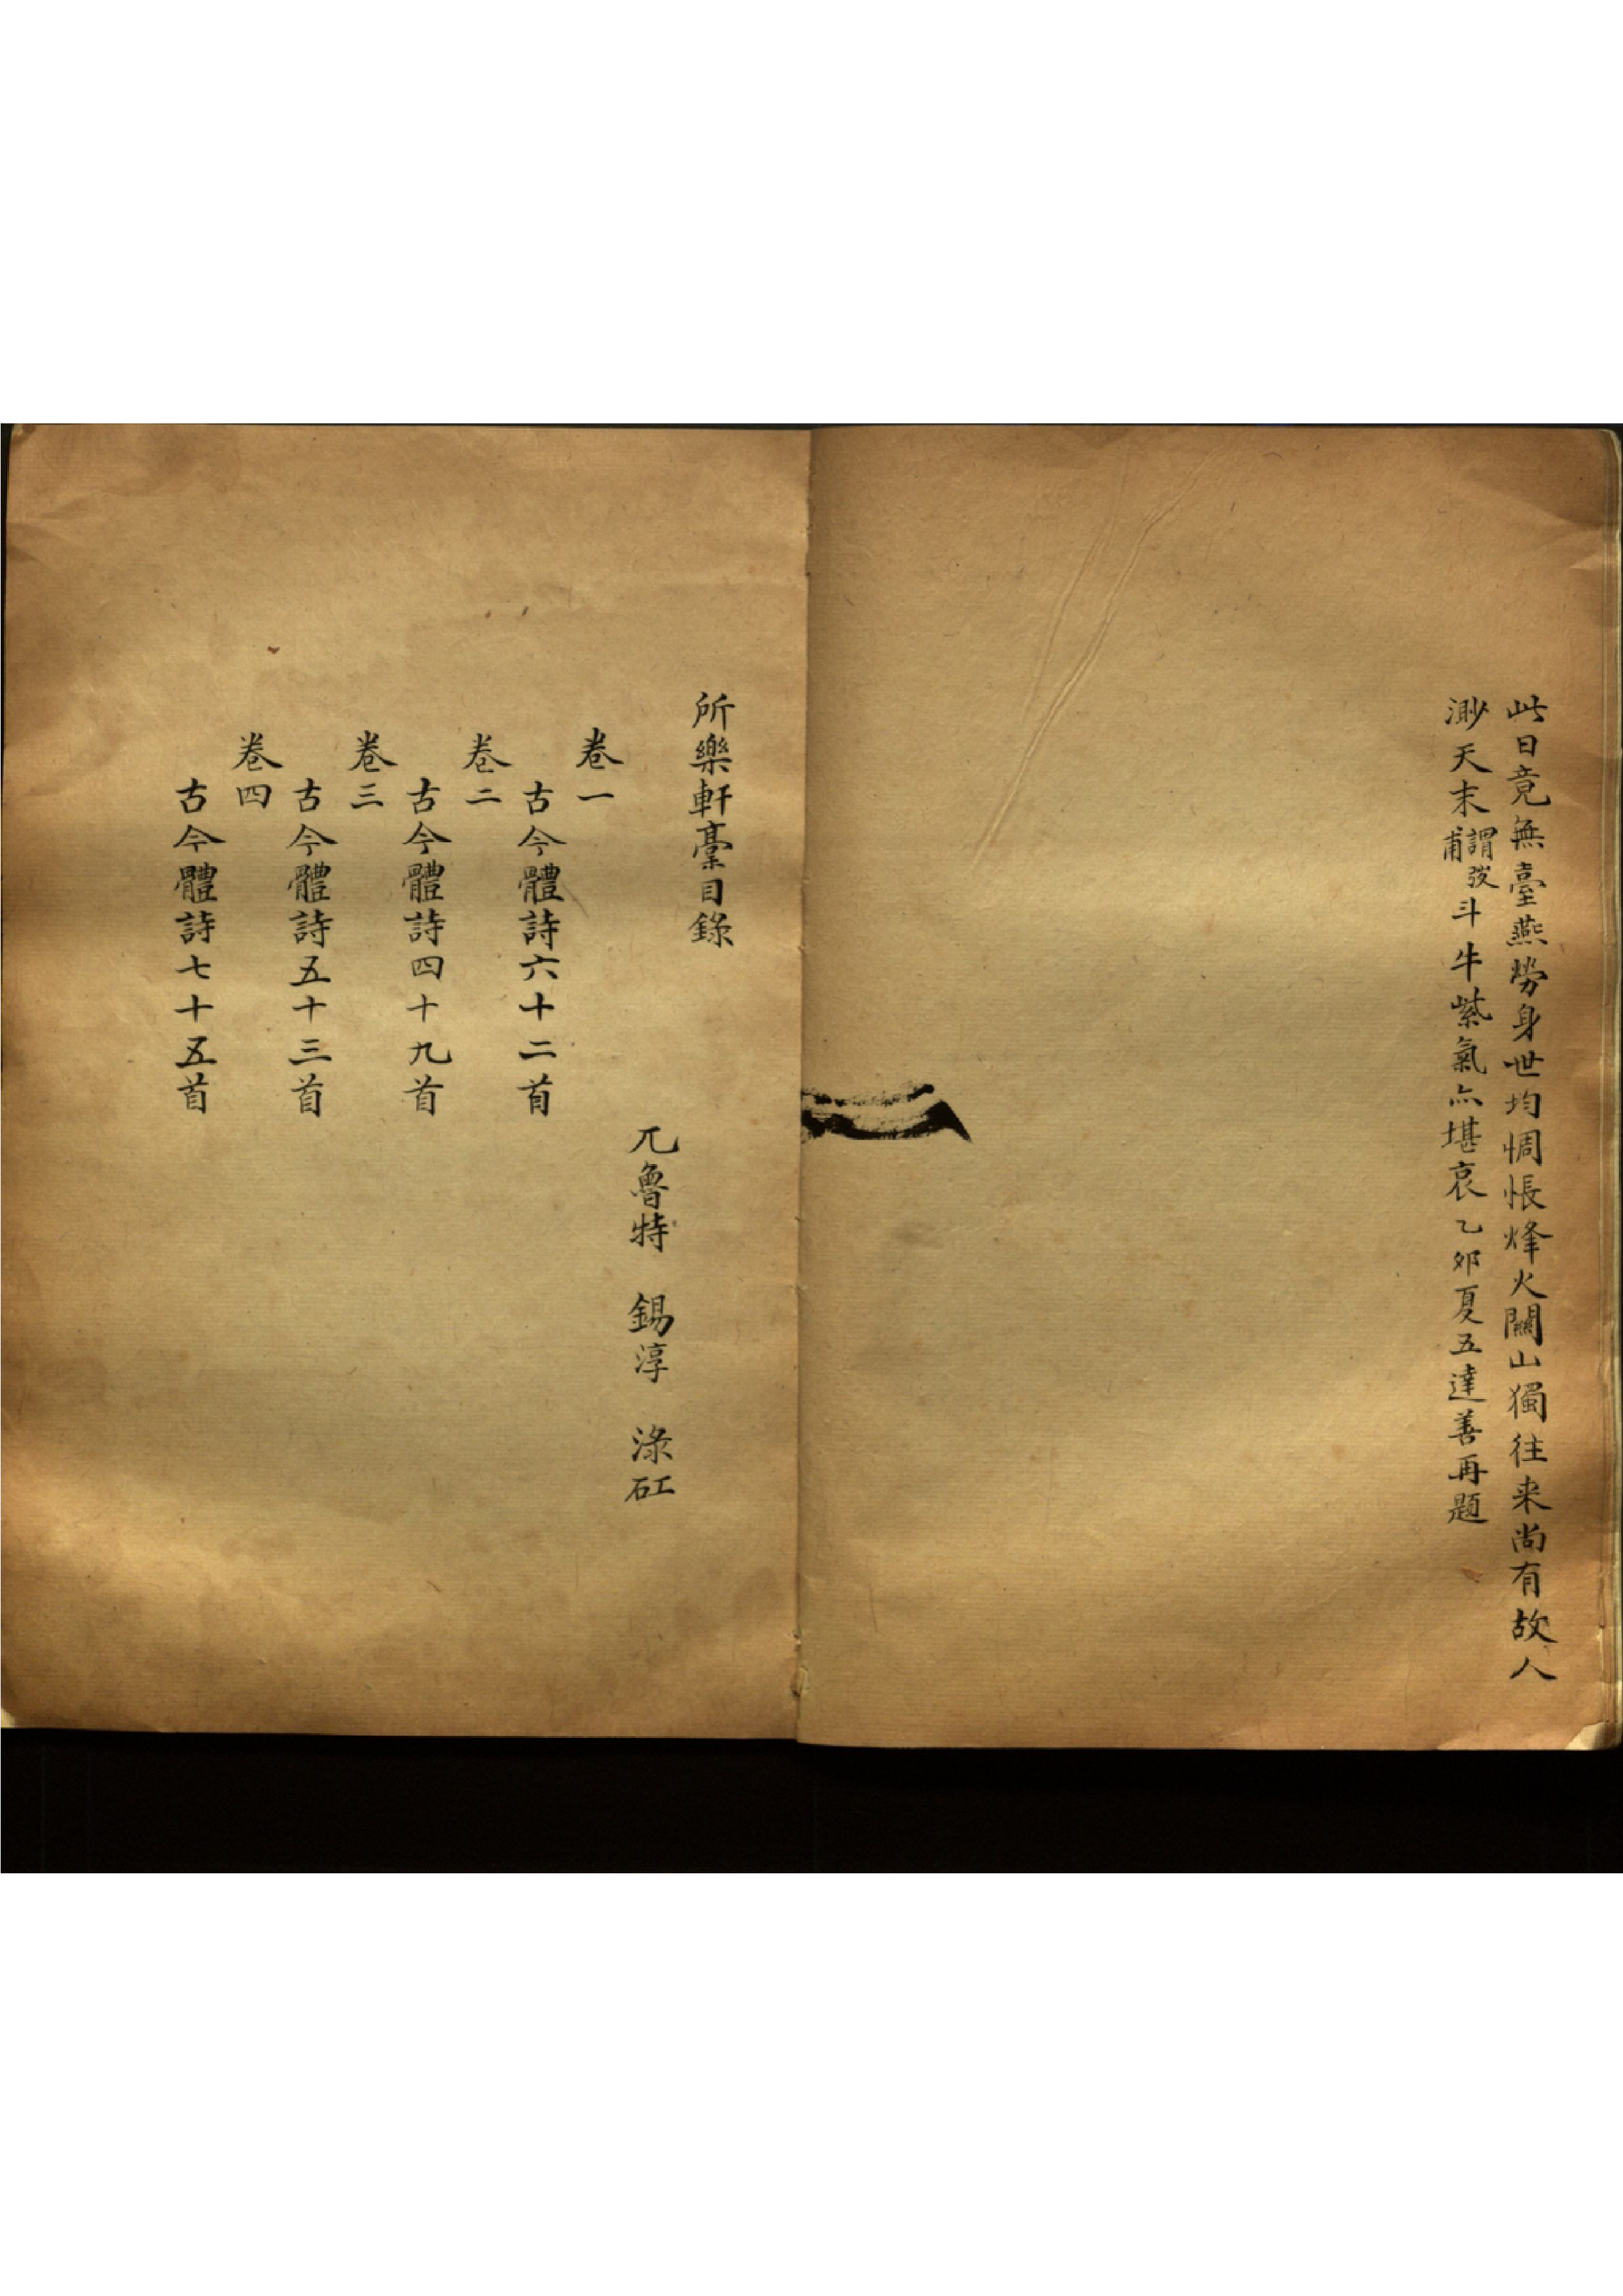 此日竟無臺燕勞身世均惆悵烽火關山獨往來尚有故人
渺天末謂弢甫斗牛紫氣亦堪哀乙卯夏五達善再題
所樂軒藁目錄
兀魯特　錫淳　淥矼
卷一
古今體詩六十二首
卷二
古今體詩四十九首
卷三
古今體詩五十三首
卷四
古今體詩七十五首